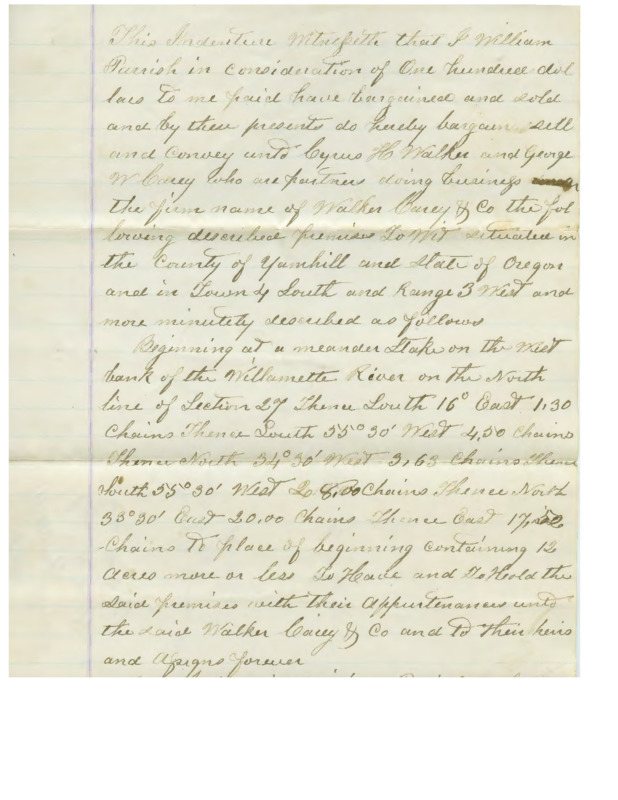 This Indenture Witnesseth that I William
Parrish in consideration of One hundred dol
lars to me paid have bargained and sold
and by these presents do hereby bargain sell
and Convey unto Cyrus H Walker and George
W Carey who are partners doing business
the firm name of Walker Carey & Co the fol
lowing described premises To Wit situated in
the County of Yamhill and State of Oregon
and in Town 4 South and Range 3 West and
more minutely described as follows
Beginning at a meander Stake on the West
bank of the Willamette River on the North
line of Section 27 Thence South 16° East 1,30
Chains Thence South 55° 30' West 4,50 Chains
Thence North 34° 30' West 3,63 Chains Thence
South 55° 30' West Chains Thence North
33° 30' East 20,00 Chains Thence East
Chains to place of beginning containing 12
Acres more or less To Have and To Hold the
Said premises with their Appurtenances unto
the said Walker Carey & Co and to their heirs
and Assigns forever